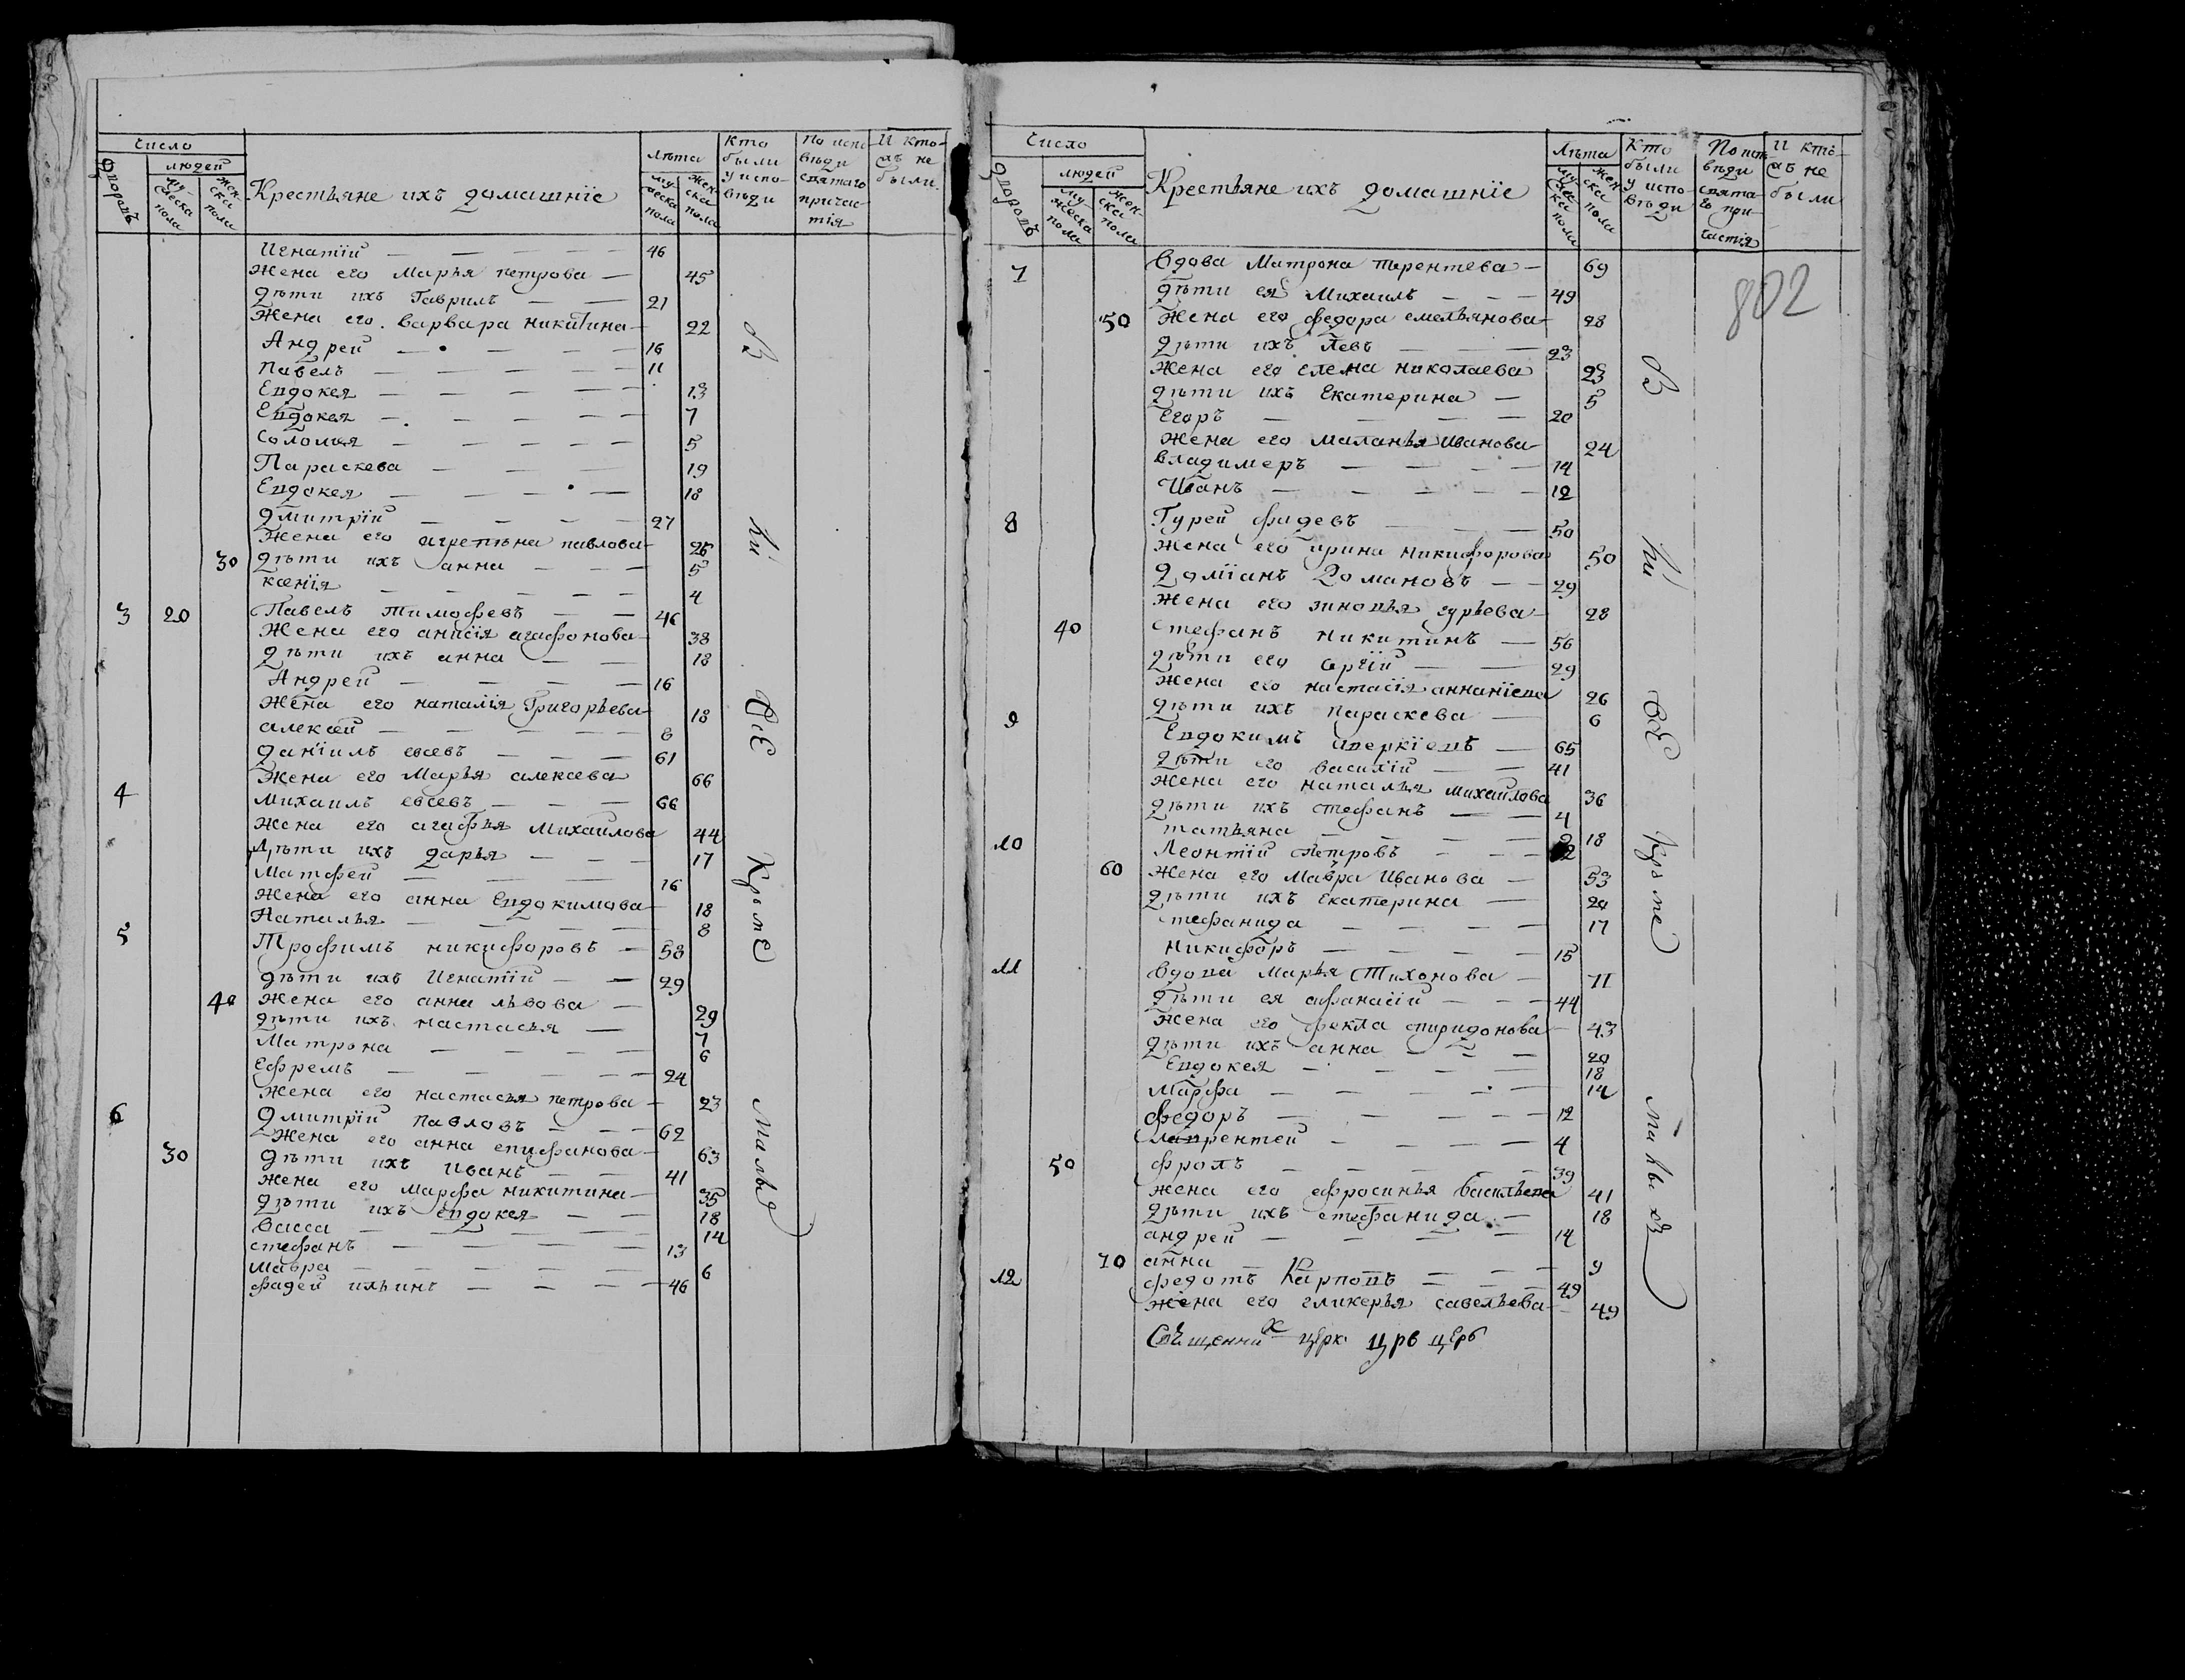 Число
Дворовъ
людей
мужеска пола
женска пола
Крестьяне ихъ домашнїе
Лѣта
мужеска пола
женска пола
Кто были у исповѣди
По исповѣди святаго причастїя
И кто ихъ не были
Игнатїй — 46
Жена его Марья петрова — 45
Дѣти ихъ Гаврилъ — 21
Жена его варвара никитина — 22
Андрей — 16
Павелъ — 11
Евдокея — 13
Евдокея — 7
Соломия — 5
Параскева — 19
Евдокея — 18
Дмитрїй — 27
Жена его агрепѣна павлова — 26
30 Дѣти ихъ анна — 5
ксенїя — 4
3 20 Павелъ тимофевъ — 46
Жена его анисїя агафонова — 38
Дѣти ихъ анна — 18
Андрей — 16
Жена его наталїя Григорьева — 18
алексей — 8
Данїилъ евсевъ — 61
Жена его Марья алексева 66
4 Михаилъ евсевъ — 66
Жена его агафья Михаилова 44
Дѣти ихъ дарья — 17
Матфей — 16
Жена его анна Евдокимова — 18
Наталья — 8
5 Трофимъ никифоровъ — 58
Дѣти ихъ Игнатїй — 29
40 Жена его анна львова — 29
Дѣти ихъ настасья — 7
Матрона — 6
Ефремъ — 24
Жена его настасья петрова — 23
6 Дмитрїй павловъ — 62
Жена его анна епифанова — 63
30 Дѣти ихъ Иванъ — 41
Жена его марфа никитина — 35
Дѣти ихъ евдокея — 18
Васса — 14
стефанъ — 13
Мавра — 6
фадей ильинъ — 46
Число
Дворовъ
людей
мужеска пола
женска пола
Крестьяне ихъ домашнїе
Лѣта
мужеска пола
женска пола
Кто были у исповѣди
По исповѣди святаго причастїя
И кто ихъ не были
802
7 Вдова Матрона терентева — 69
Дѣти ея Михаилъ — 49
50 Жена его федора емельянова — 28
Дѣти ихъ Левъ — 23
Жена его елена николаева 23
Дѣти ихъ Екатерина — 5
Егоръ — 20
Жена его маланья Иванова — 24
Владимеръ — 14
Иванъ — 12
8 Гурей фадевъ — 50
Жена его ирина никифорова 50
Домїанъ Романовъ — 29
Жена его зиновья гурьева — 28
40 Стефанъ никитинъ — 56
Дѣти его сергїй — 29
Жена его настасїя ананїева 26
Дѣти ихъ параскева — 6
9 Евдокимъ аверкїевъ — 65
Дѣти его василїй — 41
Жена его наталья михаилова 36
Дѣти ихъ стефанъ — 4
татьяна — 18
10 Леонтїй петровъ —
60 Жена его Мавра Иванова — 53
Дѣти ихъ Екатерина — 20
Стефанида — 17
Никифоръ — 15
11 Вдова Марья Тихонова — 71
Дѣти ея афанасїй — 44
Жена его фекла спиридонова — 43
Дѣти ихъ анна — 20
Евдокея — 18
Марфа — 14
Федоръ — 12
Лаврентей — 4
50 фролъ — 39
Жена его ефросинья Васильева 41
Дѣти ихъ стефанида — 18
андрей — 14
70 анна — 9
12 федотъ Карповъ — 49
Жена его гликерья савельева — 49